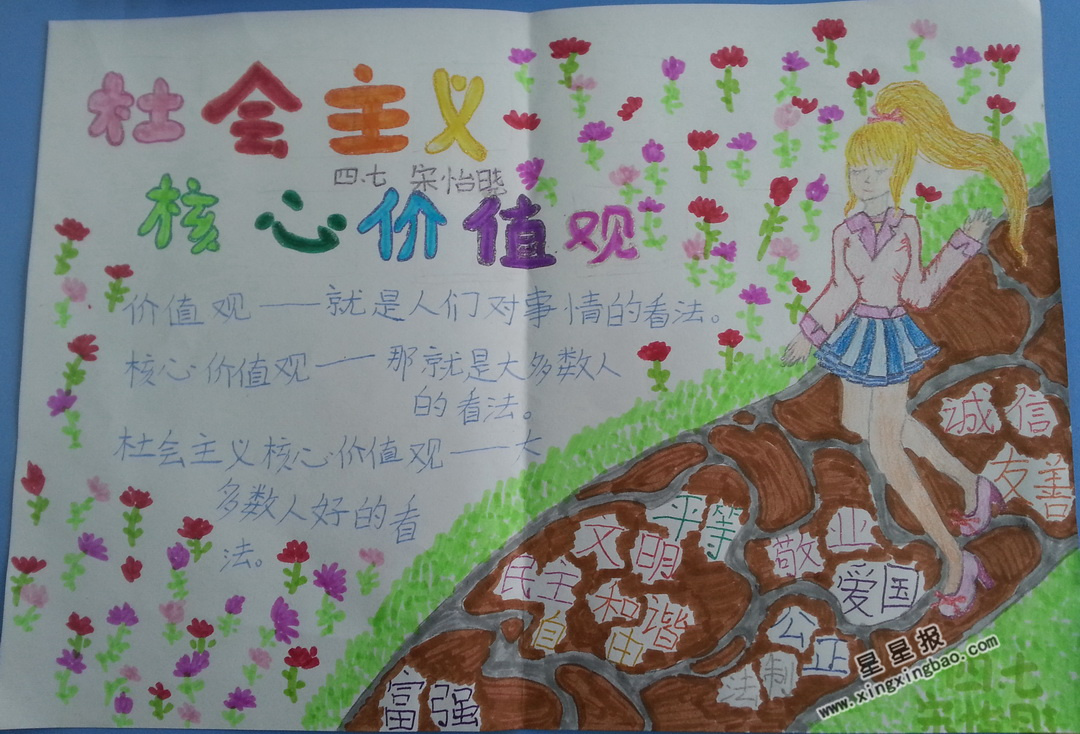 社会主义
四.七 宋怡晓
核心价值观
价值观——就是人们对事情的看法。
核心价值观——那就是大多数人
的看法。
社会主义核心价值观——大
多数人好的看
法。
诚信
友善
平等
文明
敬业
民主
爱国
和谐
自由
公正
法制
富强
星星报
www.xingxingbao.com
四.七